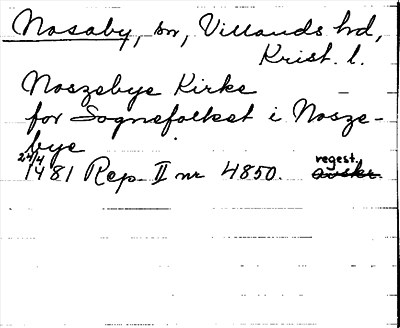 Nosaby, sn, Villands hd,
Krist. l.
Noszebye Kirke
for Sognefolket i Nosze-
bye
24/4 1481 Rep. II nr 4850. regest.
avskr.